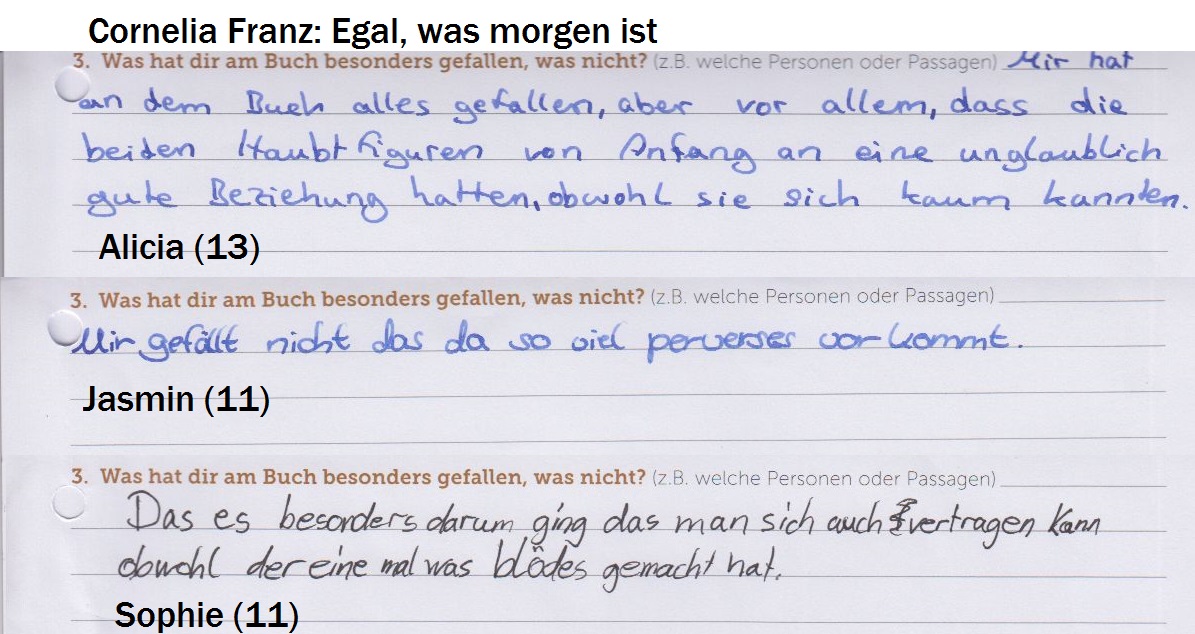 Cornelia Franz: Egal, was morgen ist
3. Was hat dir am Buch besonders gefallen, was nicht? (z.B. welche Personen oder Passagen) Mir hat
an dem Buch alles gefallen, aber vor allem, dass die
beiden Haubtfiguren von Anfang an eine unglaublich
gute Beziehung hatten, obwohl sie sich kaum kannten.
Alicia (13)
3. Was hat dir am Buch besonders gefallen, was nicht? (z.B. welche Personen oder Passagen)
Mir gefällt nicht das da so viel perverses vorkommt.
Jasmin (11)
3. Was hat dir am Buch besonders gefallen, was nicht? (z.B. welche Personen oder Passagen)
Das es besonders darum ging das man sich auch vertragen kann
obwohl der eine mal was blödes gemacht hat.
Sophie (11)